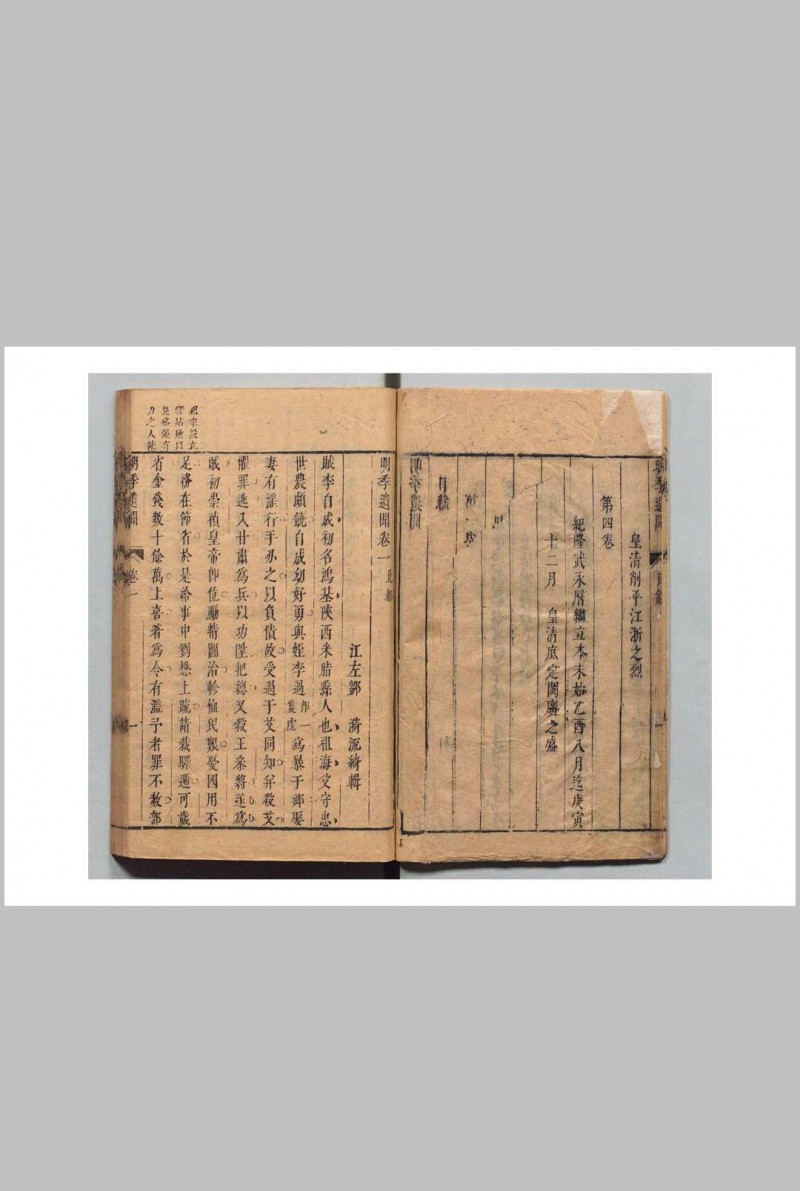 皇清削平江浙之烈
第四卷
紀隆武永曆繼立本末始乙酉八月迄庚寅
十二月　皇清底定閩廣之盛
目錄
明季遺聞
明季遺聞卷一
江左鄒　漪流綺輯
賊李自成初名鴻基陝西米脂縣人也祖海父守忠
世農頗饒自成幼好勇與姪李過卽一隻虎為暴于鄉娶
妻有淫行手刃之以負債故受過于艾同知并殺艾
懼罪逃入甘肅為兵以功陞把總又殺王叅將遂為
賊初崇禎皇帝卽位勵精圖治軫恤民艱憂國用不
足務在節省於是給事中劉懋上疏請裁驛遞可歲
省金錢數十餘萬上喜著為令有濫予者罪不赦部
祖宗設立
驛站所以
力之人使
明季遺聞
卷一
一